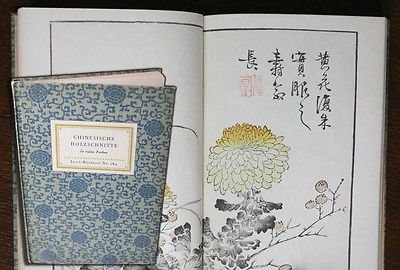 CHINESISCHE
HOLZSCHNITTE
In vielen Farben
Insel-Bücherei Nr. 164
黄花復朱
實服之
壽命
長